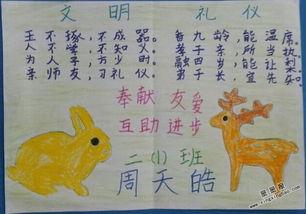 文明 礼仪
玉不琢，不成器。
人不学，不知义。
为人子，方少时。
亲师友，习礼仪。
香九龄，能温席。
孝于亲，所当执。
融四岁，能让梨。
弟于长，宜先知。
奉献 友爱
互助 进步
二(1)班
周天皓